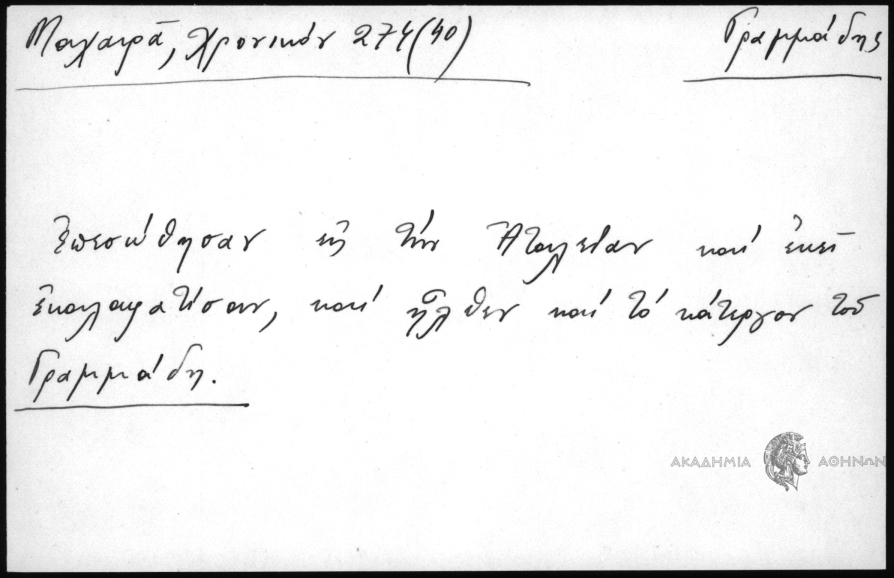 Μαχαιρᾶ, Χρονικόν 274(40) Γραμμιάδης
ἐπεσώθησαν εἰς τὴν Ἀταλείαν καὶ ἐκεῖ
ἐκαλαφατίσαν, καὶ ἦλθεν καὶ τὸ κάτεργον τοῦ
Γραμμιάδη.
ΑΚΑΔΗΜΙΑ ΑΘΗΝΩΝ